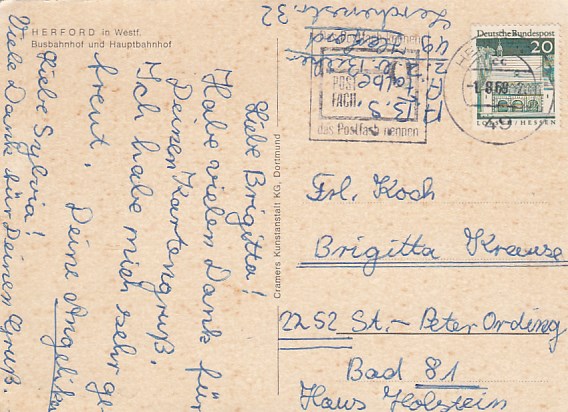 HERFORD in Westf.
Busbahnhof und Hauptbahnhof
Liebe Brigitta!
Habe vielen Dank für
Deinen Kartengruß.
Ich habe mich sehr ge-
freut.
Deine Angelika
Liebe Sylvia!
Viele Dank für Deinen Gruß.
Cramers Kunstanstalt KG, Dortmund
49 Herford
32
POST
FACH
das Postfach nennen
-1.9.69
49
Deutsche Bundespost
20
LORSCH/HESSEN
Frl. Koch
Brigitta Krause
2252 St.-Peter Ording
Bad 81
Haus Holstein